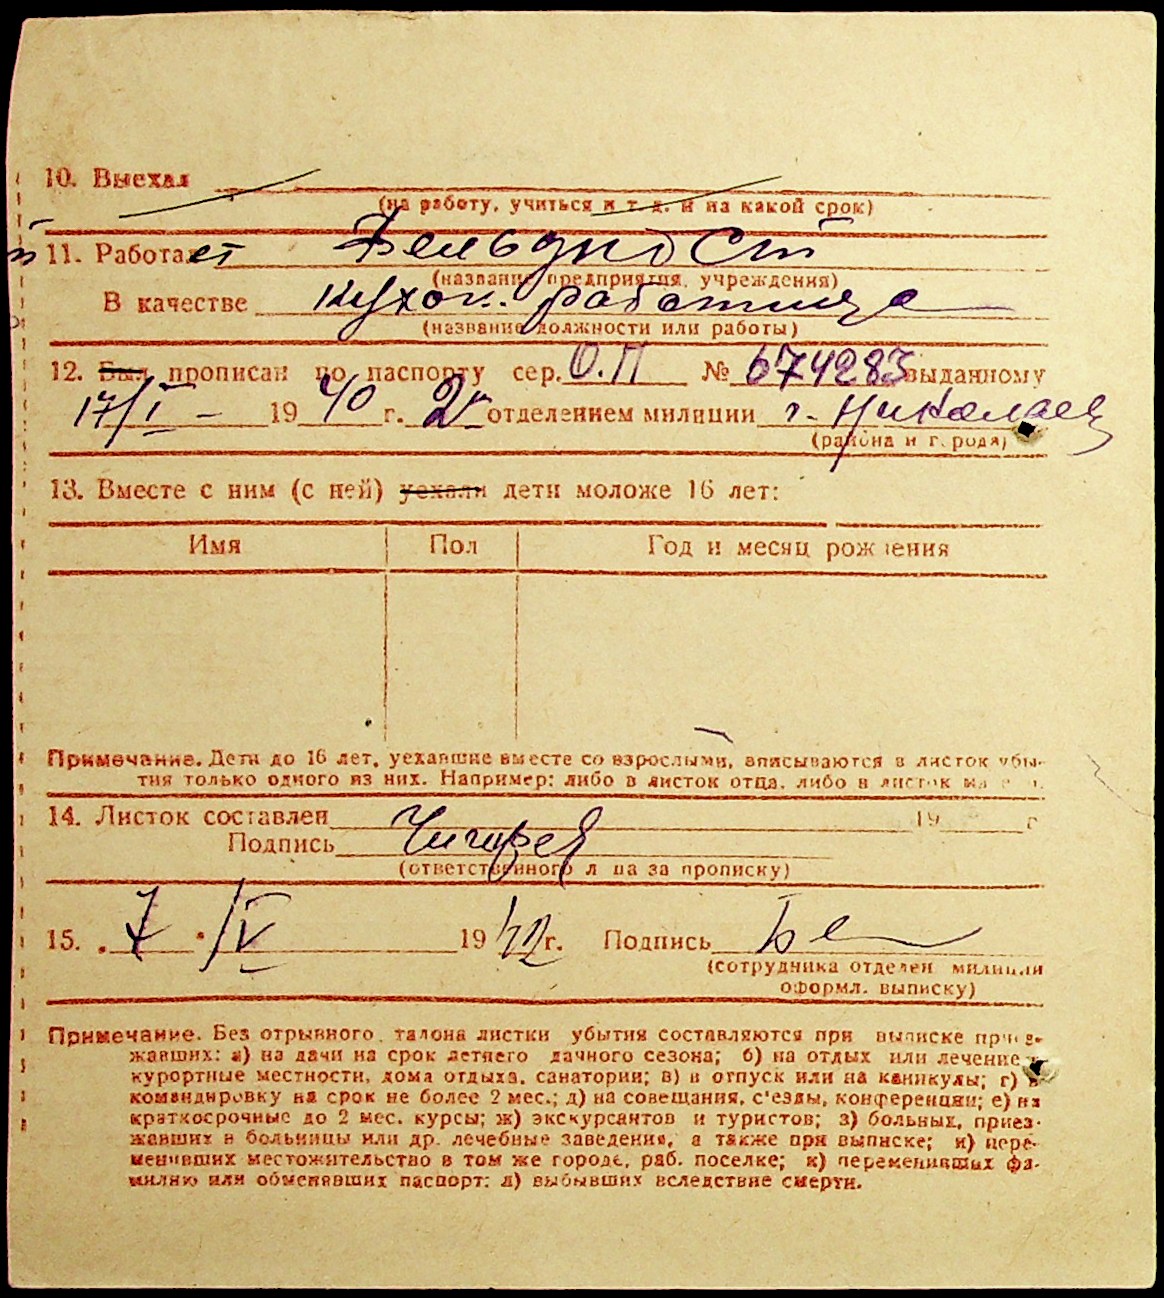 10. Выехал
(на работу, учиться и т. д. и на какой срок)
11. Работает Фельдпост
(название предприятия, учреждения)
В качестве Кухон. работница
(название должности или работы)
12. Был прописан по паспорту сер. О.П № 674283 выданному
17/I - 1940 г. 2 отделением милиции г. Николаев
(района и города)
13. Вместе с ним (с ней) уехали дети моложе 16 лет:
Имя Пол Год и месяц рождения
Примечание. Дети до 16 лет, уехавшие вместе со взрослыми, вписываются в листок убы-
тия только одного из них. Например: либо в листок отца, либо в листок
14. Листок составлен 19 г
Подпись
(ответственного лица за прописку)
15. 7. IV 1942 г. Подпись
(сотрудника отделен милиции
оформл. выписку)
Примечание. Без отрывного талона листки убытия составляются при выписке приез-
жавших: а) на дачи на срок летнего дачного сезона; б) на отдых или лечение в
курортные местности, дома отдыха, санатории; в) в отпуск или на каникулы; г) в
командировку на срок не более 2 мес.; д) на совещания, с'езды, конференции; е) на
краткосрочные до 2 мес. курсы; ж) экскурсантов и туристов; з) больных, приез-
жавших в больницы или др. лечебные заведения, а также при выписке; и) пере-
менивших местожительство в том же городе, раб. поселке; к) переменивших фа-
милию или обменявших паспорт; л) выбывших вследствие смерти.